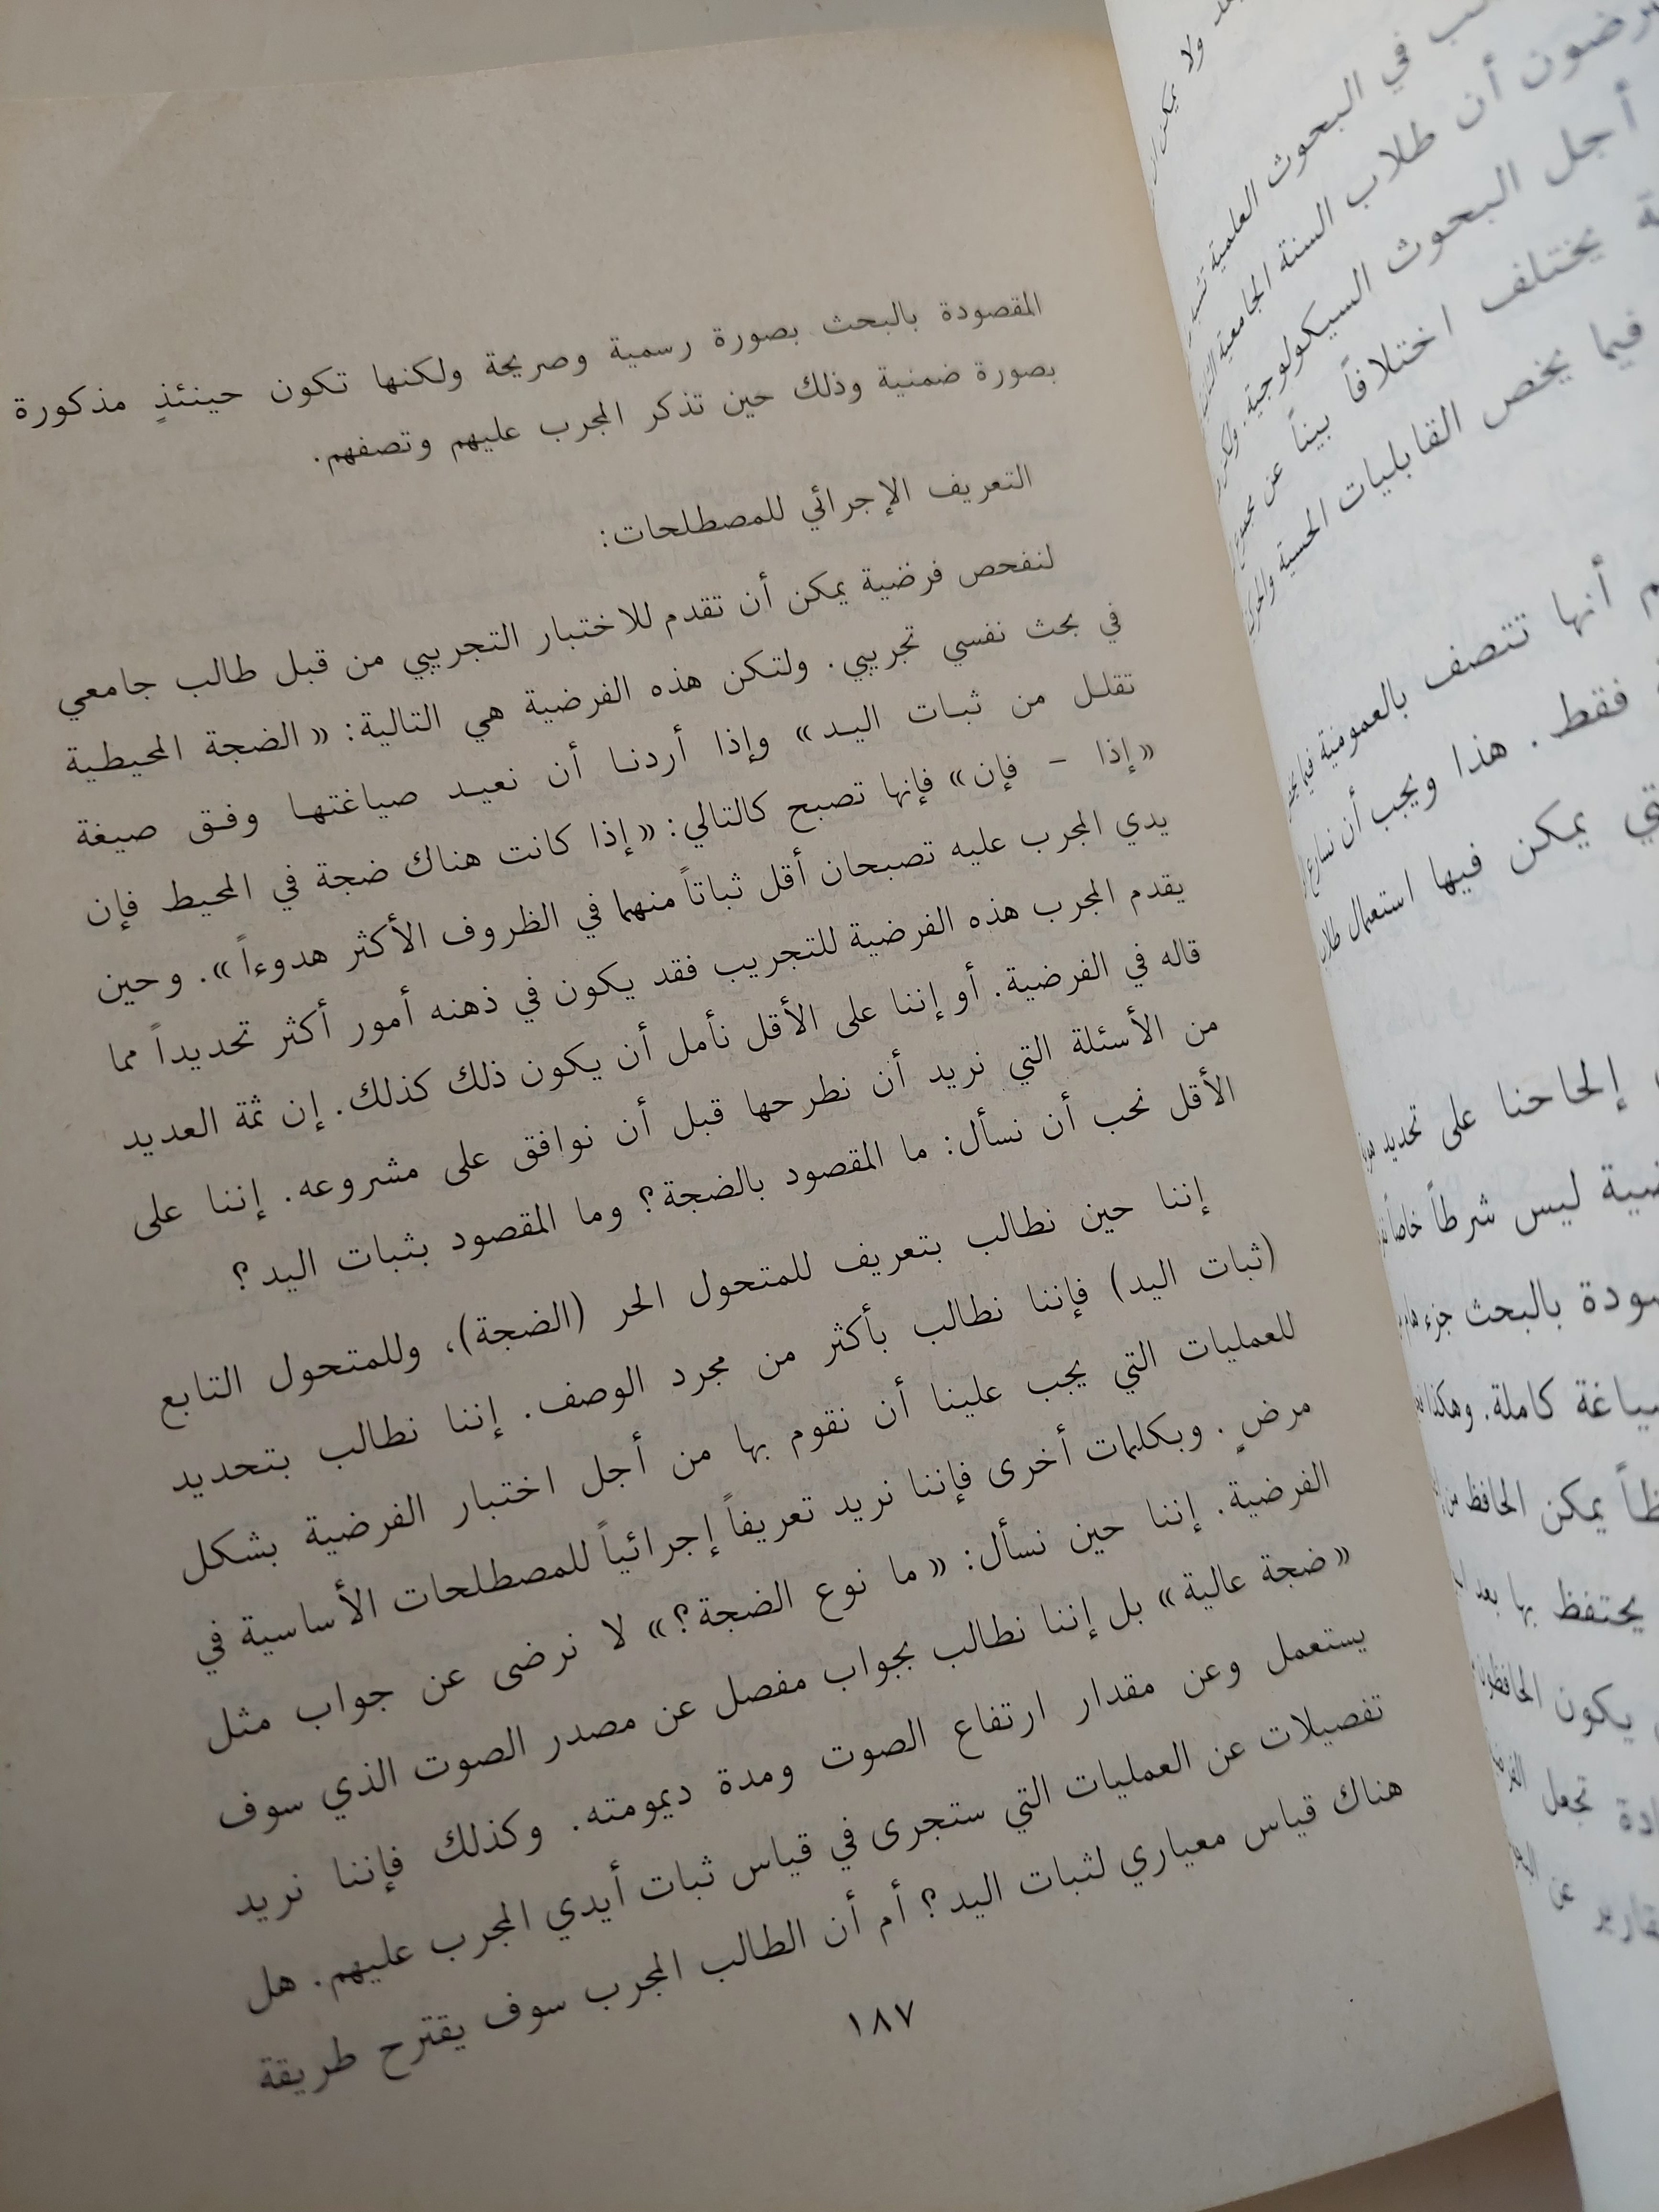 المقصودة بالبحث بصورة رسمية وصريحة ولكنها تكون حينئذٍ مذكورة
بصورة ضمنية وذلك حين تذكر المجرب عليهم وتصفهم.
التعريف الإجرائي للمصطلحات:
لنفحص فرضية يمكن أن تقدم للاختبار التجريبي من قبل طالب جامعي
في بحث نفسي تجريبي. ولتكن هذه الفرضية هي التالية: «الضجة المحيطية
تقلل من ثبات اليد» وإذا أردنا أن نعيد صياغتها وفق صيغة
«إذا - فإن» فإنها تصبح كالتالي: «إذا كانت هناك ضجة في المحيط فإن
يدي المجرب عليه تصبحان أقل ثباتاً منهما في الظروف الأكثر هدوءاً». وحين
يقدم المجرب هذه الفرضية للتجريب فقد يكون في ذهنه أمور أكثر تحديداً مما
قاله في الفرضية. أو إننا على الأقل نأمل أن يكون ذلك كذلك. إن ثمة العديد
من الأسئلة التي نريد أن نطرحها قبل أن نوافق على مشروعه. إننا على
الأقل نحب أن نسأل: ما المقصود بالضجة؟ وما المقصود بثبات اليد؟
إننا حين نطالب بتعريف للمتحول الحر (الضجة)، وللمتحول التابع
(ثبات اليد) فإننا نطالب بأكثر من مجرد الوصف. إننا نطالب بتحديد
للعمليات التي يجب علينا أن نقوم بها من أجل اختبار الفرضية بشكل
مرضٍ. وبكلمات أخرى فإننا نريد تعريفاً إجرائياً للمصطلحات الأساسية في
الفرضية. إننا حين نسأل: «ما نوع الضجة؟» لا نرضى عن جواب مثل
«ضجة عالية» بل إننا نطالب بجواب مفصل عن مصدر الصوت الذي سوف
يستعمل وعن مقدار ارتفاع الصوت ومدة ديمومته. وكذلك فإننا نريد
تفصيلات عن العمليات التي ستجرى في قياس ثبات أيدي المجرب عليهم. هل
هناك قياس معياري لثبات اليد؟ أم أن الطالب المجرب سوف يقترح طريقة
١٨٧
ولا يمكن
في البحوث العلمية
أن طلاب السنة الجامعية
أجل البحوث السيكولوجية.
يختلف اختلافاً بيناً عن
فيما يخص القابليات الحسية
أنها تتصف بالعمومية
فقط. هذا ويجب أن نسارع
يمكن فيها استعمال
إلحاحنا على تحديد
ليس شرطاً خاصاً
بالبحث جزء
كاملة. وهكذا
يمكن الحافظ
يحتفظ بها بعد
يكون
تجعل
عن